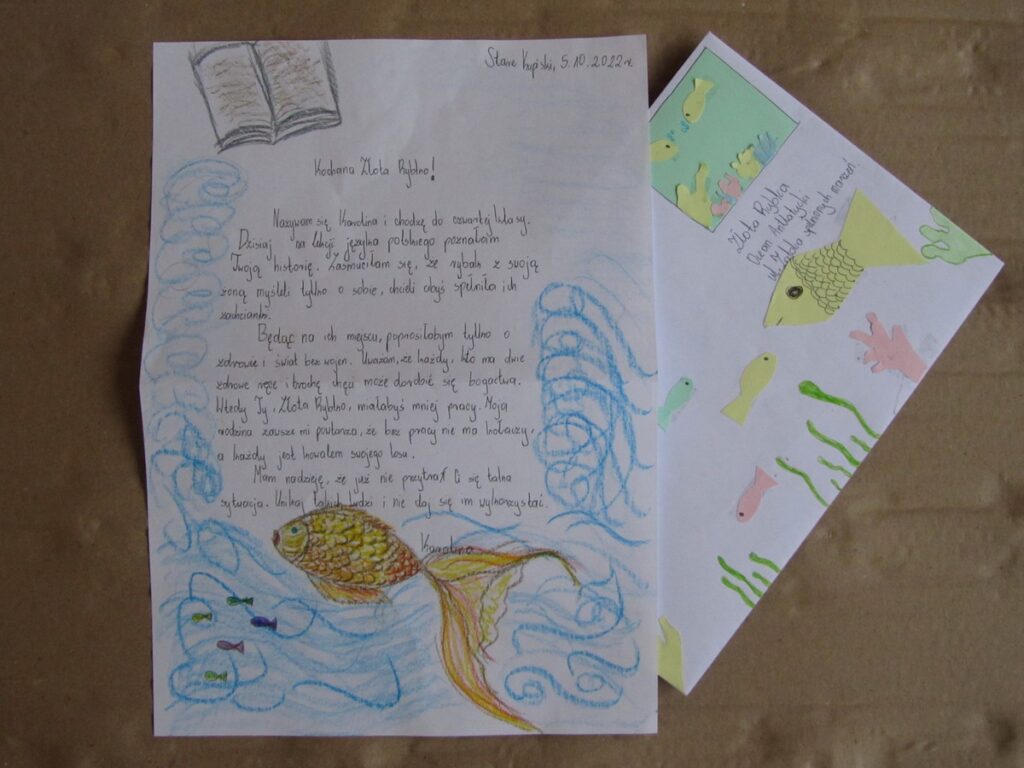 Stare Krępiski, 5.10.2022r.
Kochana Złota Rybko!
Nazywam się Karolina i chodzę do czwartej klasy.
Dzisiaj na lekcji języka polskiego poznałam
Twoją historię. Zasmuciłam się, że rybak z swoją
żoną myśleli tylko o sobie, chcieli abyś spełniła ich
zachcianki.
Będąc na ich miejscu, poprosiłabym tylko o
zdrowie i świat bez wojen. Uważam, że każdy, kto ma dwie
zdrowe ręce i trochę chęci może dorobić się bogactwa.
Wtedy Ty, Złota Rybko, miałabyś mniej pracy. Moja
rodzina zawsze mi powtarza, że bez pracy nie ma kołaczy,
a każdy jest kowalem swojego losu.
Mam nadzieję, że już nie przytrafi Ci się taka
sytuacja. Unikaj takich ludzi i nie daj się im wykorzystać.
Karolina
Złota Rybka
Ocean Atlantycki
ul. Zatoka spełnionych marzeń